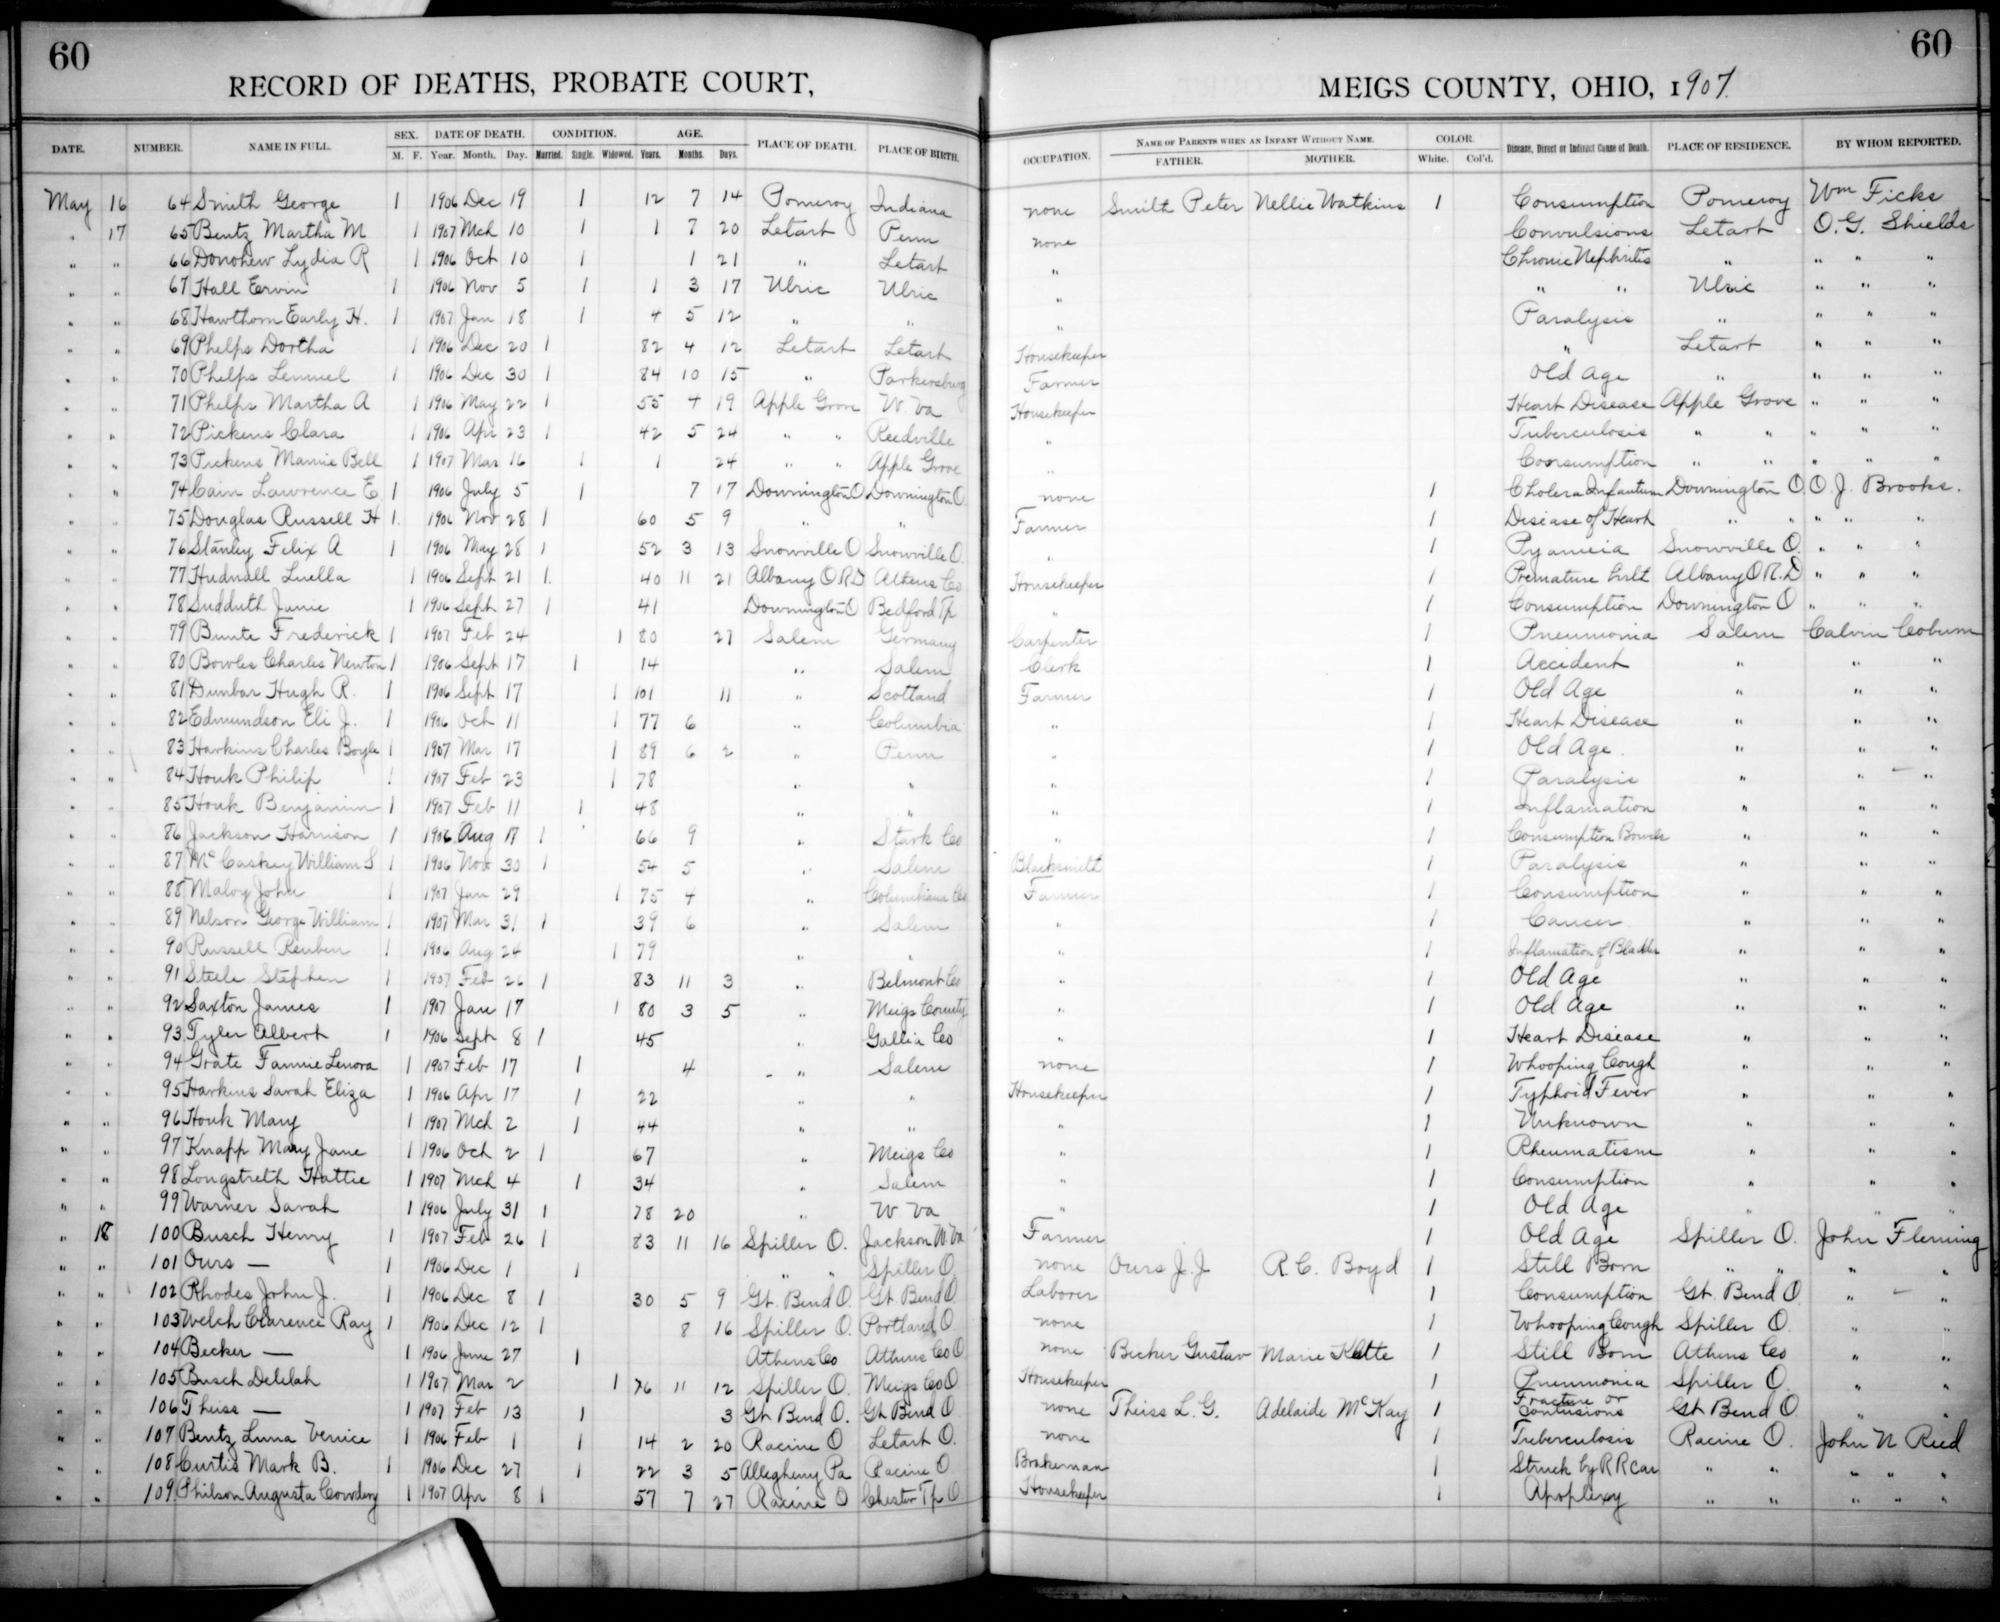 60
60
RECORD OF DEATHS, PROBATE COURT, MEIGS COUNTY, OHIO, 1907.
DATE. NUMBER. NAME IN FULL. SEX. M. F. DATE OF DEATH. Year. Month. Day. CONDITION. Married. Single. Widowed. AGE. Years. Months. Days. PLACE OF DEATH. PLACE OF BIRTH. OCCUPATION. NAME OF PARENTS WHEN AN INFANT WITHOUT NAME. FATHER. MOTHER. COLOR. White. Col'd. Disease, Direct or Indirect Cause of Death. PLACE OF RESIDENCE. BY WHOM REPORTED.
May 16 64 Smith George 1 1906 Dec 19 1 12 7 14 Pomeroy Indiana none Smith Peter Nellie Watkins 1 Consumption Pomeroy Wm Ficks
" 17 65 Bentz Martha M 1 1907 Mch 10 1 1 7 20 Letart Penn none Convulsions Letart O. G. Shields
" " 66 Donohew Lydia R 1 1906 Oct 10 1 1 21 " Letart " Chronic Nephritis " " " "
" " 67 Hall Ervin 1 1906 Nov 5 1 1 3 17 Ulric Ulric " " " Ulric " " "
" " 68 Hawthorn Early H. 1 1907 Jan 18 1 4 5 12 " " " Paralysis " " " "
" " 69 Phelps Dortha 1 1906 Dec 20 1 82 4 12 Letart Letart Housekeeper " Letart " " "
" " 70 Phelps Lemuel 1 1906 Dec 30 1 84 10 15 " Parkersburg Farmer Old Age " " " "
" " 71 Phelps Martha A 1 1906 May 22 1 55 4 19 Apple Grove W. Va Housekeeper Heart Disease Apple Grove " " "
" " 72 Pickens Clara 1 1906 Apr 23 1 42 5 24 " " Reedville " Tuberculosis " " " " "
" " 73 Pickens Mamie Bell 1 1907 Mar 16 1 1 24 " " Apple Grove " Consumption " " " " "
" " 74 Cain Lawrence E. 1 1906 July 5 1 7 17 Downington O Downington O. none 1 Cholera Infantum Downington O. O. J. Brooks.
" " 75 Douglas Russell H 1. 1906 Nov 28 1 60 5 9 " " Farmer 1 Disease of Heart " " " " "
" " 76 Stanley Felix A 1 1906 May 28 1 52 3 13 Snowville O Snowville O. " 1 Pyameia Snowville O. " " "
" " 77 Hudnall Luella 1 1906 Sept 21 1. 40 11 21 Albany O R.D Athens Co Housekeeper 1 Premature Birth Albany O R.D " " "
" " 78 Sudduth Janie 1 1906 Sept 27 1 41 Downington O Bedford Tp " 1 Consumption Downington O " " "
" " 79 Bunte Frederick 1 1907 Feb 24 1 80 27 Salem Germany Carpenter 1 Pneumonia Salem Calvin Coburn
" " 80 Bowles Charles Newton 1 1906 Sept 17 1 14 " Salem Clerk 1 Accident " " "
" " 81 Dunbar Hugh R. 1 1906 Sept 17 1 101 11 " Scotland Farmer 1 Old Age " " "
" " 82 Edmundson Eli J. 1 1906 Oct 11 1 77 6 " Columbia " 1 Heart Disease " " "
" " 83 Harkins Charles Boyle 1 1907 Mar 17 1 89 6 2 " Penn " 1 Old Age. " " "
" " 84 Houk Philip 1 1907 Feb 23 1 78 " " " 1 Paralysis " " "
" " 85 Houk Benjamin 1 1907 Feb 11 1 48 " " " 1 Inflamation " " "
" " 86 Jackson Harrison 1 1906 Aug 17 1 66 9 " Stark Co " 1 Consumption Bowels " " "
" " 87 McCaskey William S 1 1906 Nov 30 1 54 5 " Salem Blacksmith 1 Paralysis " " "
" " 88 Maloy John 1 1907 Jan 29 1 75 4 " Columbiana Co Farmer 1 Consumption " " "
" " 89 Nelson George William 1 1907 Mar 31 1 39 6 " Salem " 1 Cancer " " "
" " 90 Russell Reuben 1 1906 Aug 24 1 79 " " " 1 Inflamation of Bladder " " "
" " 91 Steele Stephen 1 1907 Feb 26 1 83 11 3 " Belmont Co " 1 Old Age " " "
" " 92 Saxton James 1 1907 Jan 17 1 80 3 5 " Meigs County " 1 Old Age " " "
" " 93 Tyler Albert 1 1906 Sept 8 1 45 " Gallia Co " 1 Heart Disease " " "
" " 94 Grate Fannie Lenora 1 1907 Feb 17 1 4 " Salem none 1 Whooping Cough " " "
" " 95 Harkins Sarah Eliza 1 1906 Apr 17 1 22 " " Housekeeper 1 Typhoid Fever " " "
" " 96 Houk Mary 1 1907 Mch 2 1 44 " " " 1 Unknown " " "
" " 97 Knapp Mary Jane 1 1906 Oct 2 1 67 " Meigs Co " 1 Rheumatism " " "
" " 98 Longstreth Hattie 1 1907 Mch 4 1 34 " Salem " 1 Consumption " " "
" " 99 Warner Sarah 1 1906 July 31 1 78 20 " W Va " 1 Old Age " " "
" 18 100 Busch Henry 1 1907 Feb 26 1 83 11 16 Spiller O. Jackson W. Va Farmer 1 Old Age Spiller O. John Fleming
" " 101 Ours — 1 1906 Dec 1 1 " " Spiller O. none Ours J. J R. C. Boyd 1 Still Born " " " "
" " 102 Rhodes John J. 1 1906 Dec 8 1 30 5 9 Gt. Bend O. Gt. Bend O. Laborer 1 Consumption Gt. Bend O. " "
" " 103 Welch Clarence Ray 1 1906 Dec 12 1 8 16 Spiller O. Portland O. none 1 Whooping Cough Spiller O. " "
" " 104 Becker — 1 1906 June 27 1 Athens Co Athens Co O none Becker Gustav Marie 1 Still Born Athens Co " "
" " 105 Busch Delilah 1 1907 Mar 2 1 76 11 12 Spiller O. Meigs Co O Housekeeper 1 Pneumonia Spiller O. " "
" " 106 Theiss — 1 1907 Feb 13 1 3 Gt Bend O. Gt Bend O none Theiss L. G. Adelaide McKay 1 Fracture or Contusions Gt Bend O " "
" " 107 Bentz Luna Vernice 1 1906 Feb 1 1 14 2 20 Racine O Letart O. none 1 Tuberculosis Racine O. John N Reed
" " 108 Curtis Mark B. 1 1906 Dec 27 1 22 3 5 Allegheny Pa Racine O Brakeman 1 Struck by R R Car " " " " "
" " 109 Philson Augusta Cowdery 1 1907 Apr 8 1 57 7 27 Racine O Chester Tp O Housekeeper 1 Apoplexy " " " " "